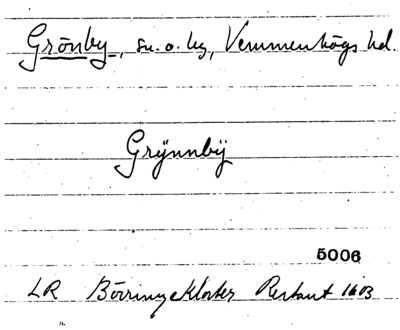 Grönby, sn. o. by, Vemmenhögs hd.
Grÿnnbÿ
5006
LR Börringekloster Restant 1603